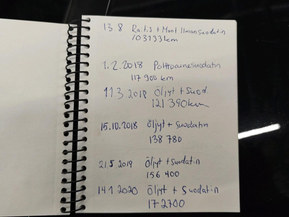 13.8
103133 km
1.2.2018 Polttoainesuodatin
117 900 km
11.3.2018 Öljyt + Suod
121 390 km
15.10.2018 Öljyt + Suodatin
138 780
21.5.2019 Öljyt + Suodatin
156 400
14.1.2020 Öljyt + Suodatin
172300